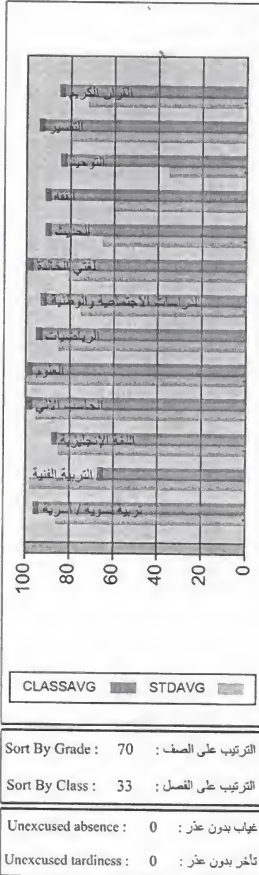 القرآن الكريم
التفسير
التوحيد
الفقه
الحديث
لغتي الخالدة
الدراسات الاجتماعية والوطنية
الرياضيات
العلوم
الحاسب الآلي
اللغة الإنجليزية
التربية الفنية
تربية نسوية / أسرية
100
80
60
40
20
0
CLASSAVG STDAVG
Sort By Grade : 70 الترتيب على الصف :
Sort By Class : 33 الترتيب على الفصل :
Unexcused absence : 0 غياب بدون عذر :
Unexcused tardiness : 0 تأخر بدون عذر :